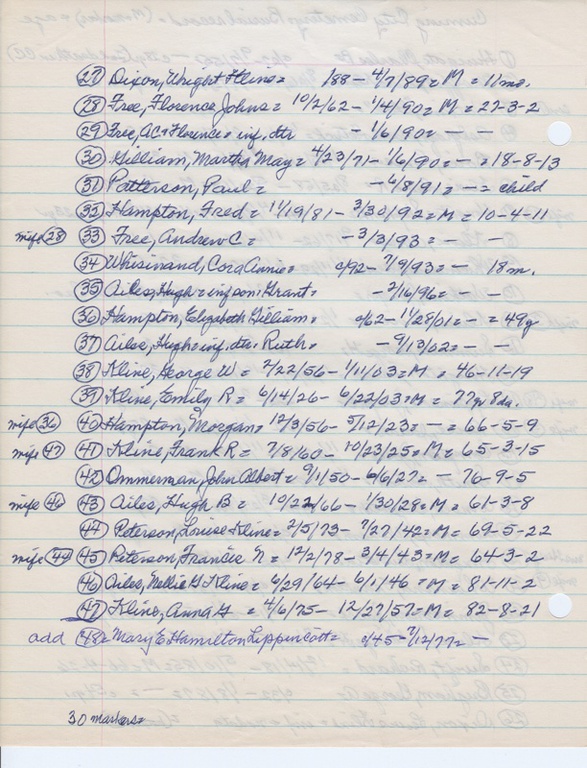 (27) Dixon, Wright Kline = /88 - 4/7/89 = M = 11 mo.
(28) Free, Florence Johns = 10/2/62 - 1/4/90 = M = 27-3-2
(29) Free, AC + Florence = inf. dtr - 1/6/90 = - -
(30) Gilliam, Martha May = 4/23/71 - 1/6/90 = - = 18-8-13
(31) Patterson, Paul = - 6/8/91 = - = child
(32) Hampton, Fred = 11/19/81 - 3/30/92 = M = 10-4-11
wife (28) (33) Free, Andrew C = - 3/3/93 = - -
(34) Whisinand, Cora Annie = c/92 - 7/9/93 = - 18 m.
(35) Ailes, Hugh = inf son, Grant = - 2/16/96 = - -
(36) Hampton, Elizabeth Gilliam = c/62 - 11/28/01 = - = 49y
(37) Ailes, Hugh = inf. dtr. Ruth = - 9/13/02 = - -
(38) Kline, George W = 2/22/56 - 1/11/03 = M = 46-11-19
(39) Kline, Emily R = 6/14/26 - 6/22/03 = M = 77y 8da.
wife (36) (40) Hampton, Morgan = 12/3/56 - 5/12/23 = - = 66-5-9
wife (47) (41) Kline, Frank R = 7/8/60 - 10/23/25 = M = 65-3-15
(42) Ommerman, John Albert = 9/1/50 - 6/6/27 = - 76-9-5
wife (46) (43) Ailes, Hugh B = 10/22/66 - 1/30/28 = M = 61-3-8
(44) Peterson, Louise Kline = 2/5/73 - 7/27/42 = M = 69-5-22
wife (44) (45) Peterson, Francis N = 12/2/78 - 3/4/43 = M = 64-3-2
(46) Ailes, Nellie G Kline = 6/29/64 - 6/1/46 = M = 81-11-2
(47) Kline, Anna G = 4/6/75 - 12/27/57 = M = 82-8-21
add (48) = Mary E. Hamilton Lippincott = c/45 - 7/12/77 = -
30 markers =